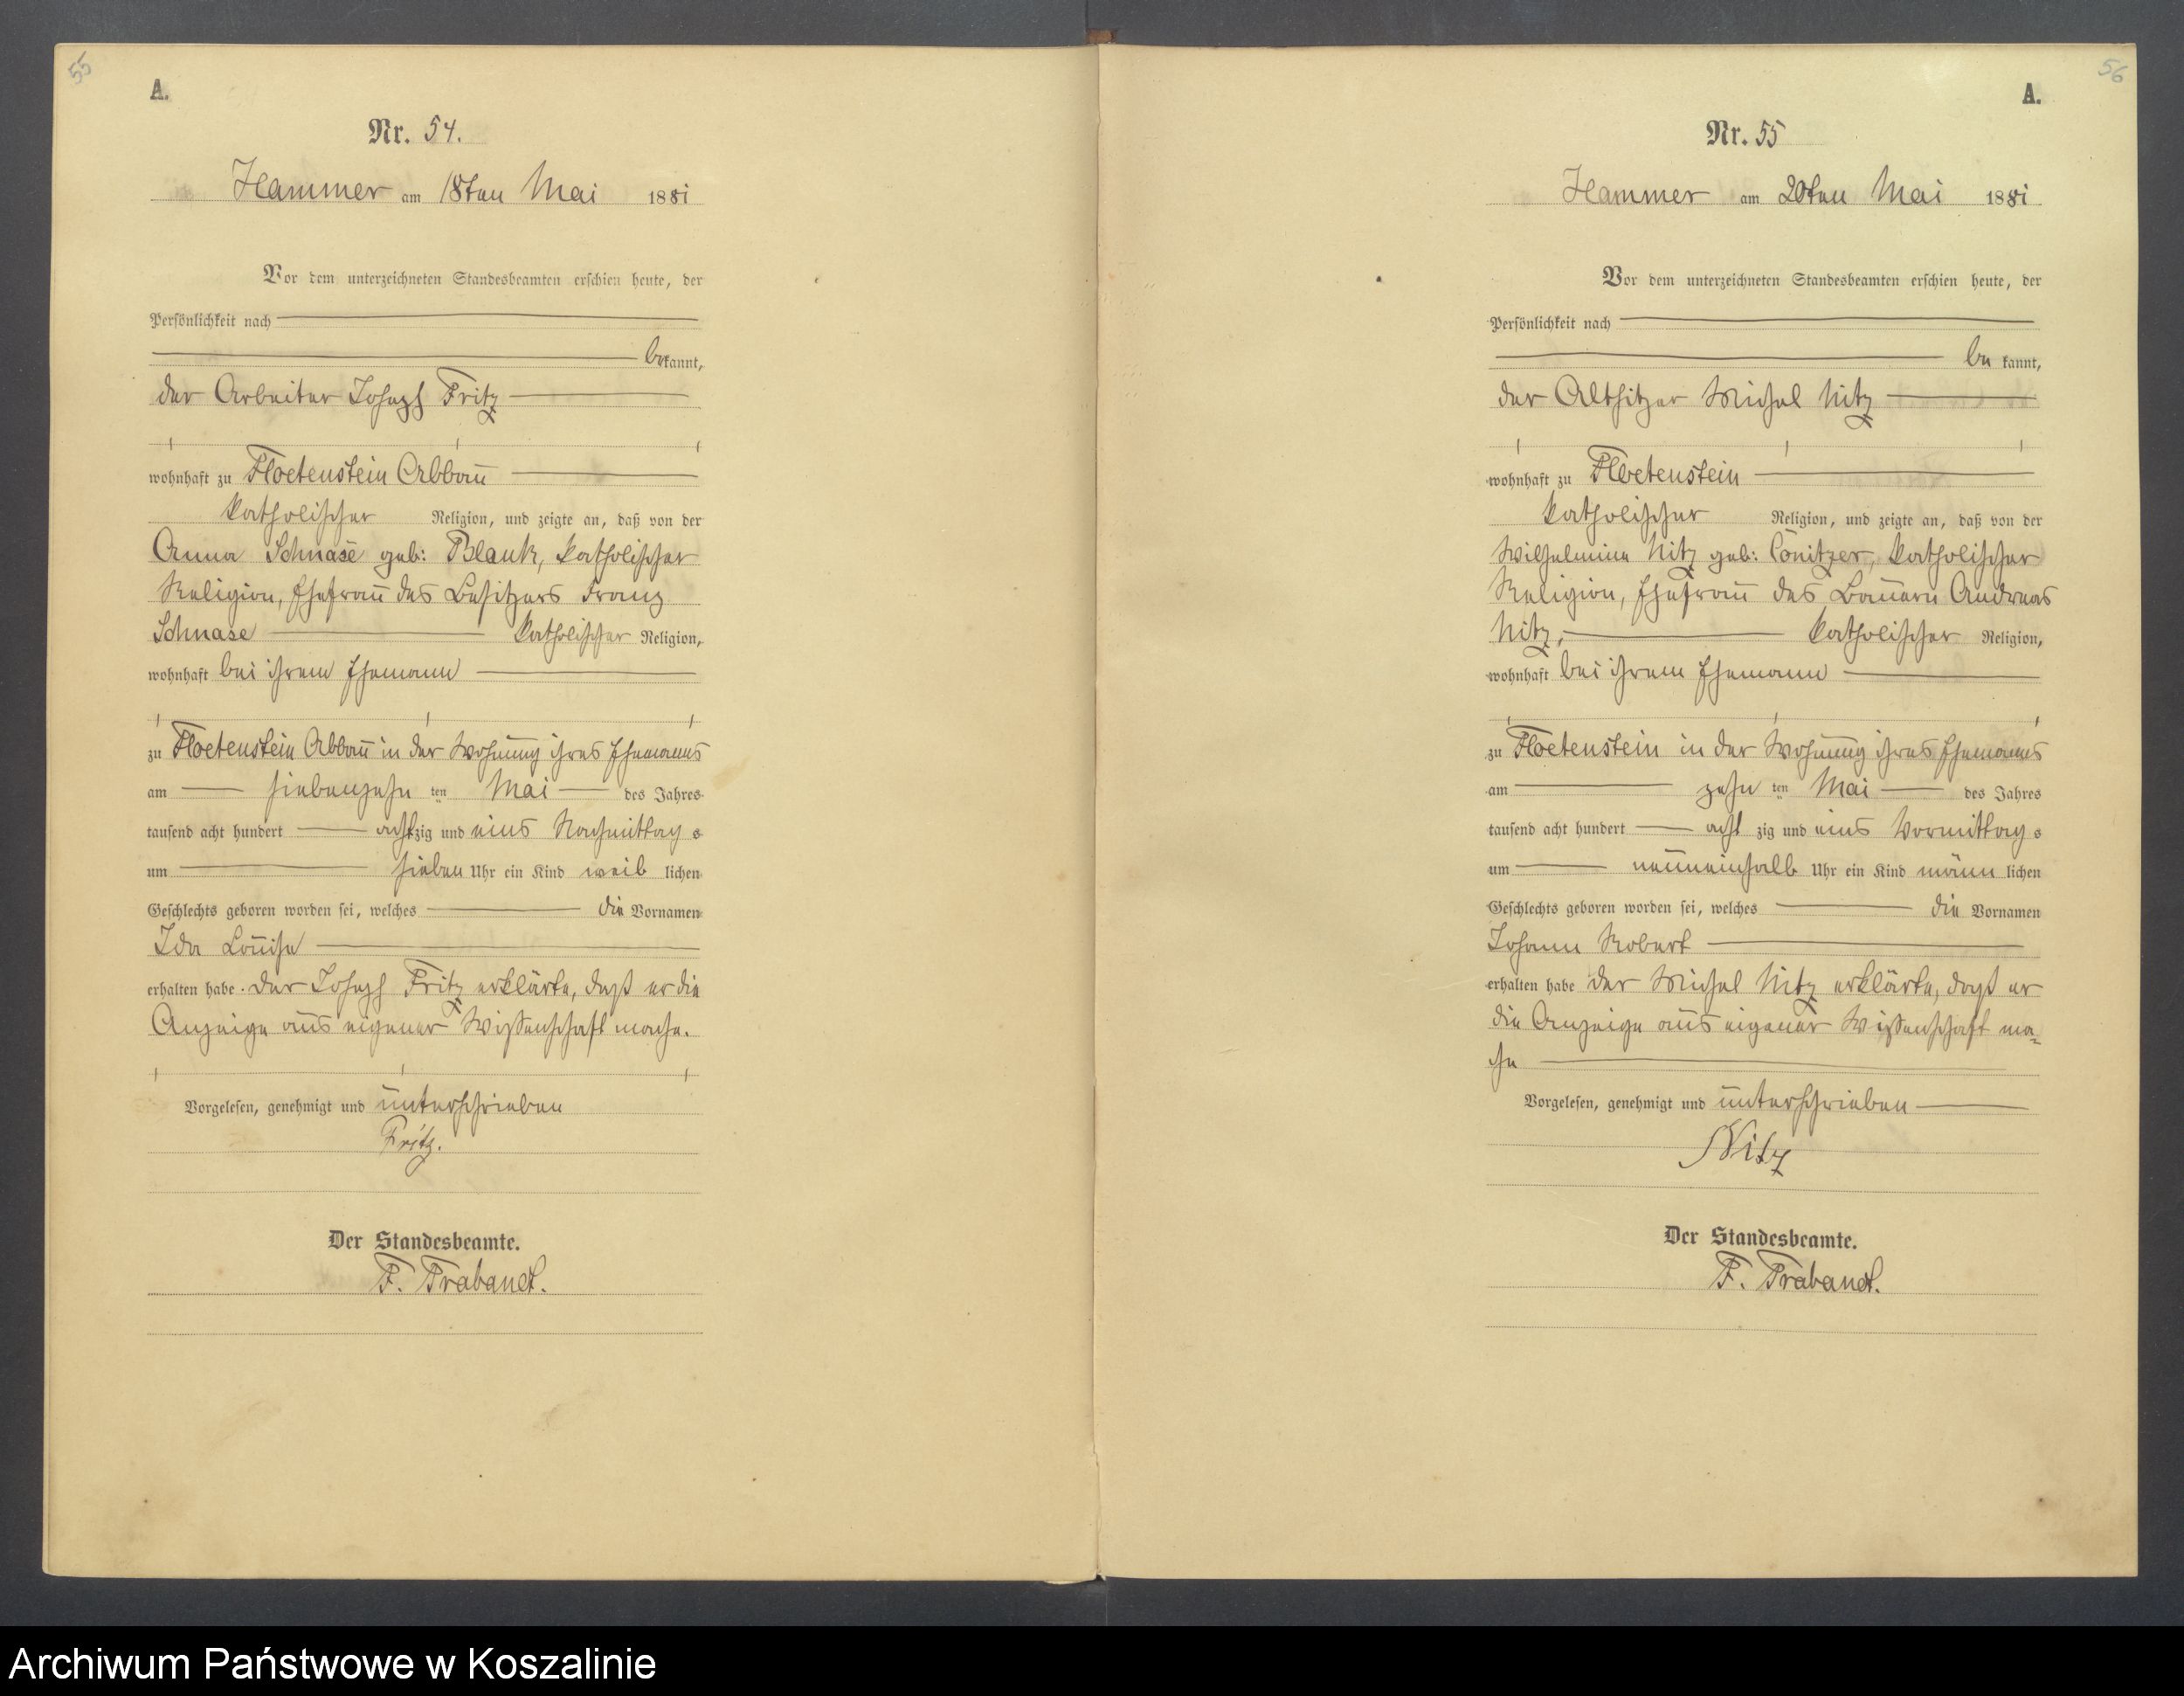 55
A.
Nr. 54.
Hammer am 18ten Mai 1881
Vor dem unterzeichneten Standesbeamten erschien heute, der
Persönlichkeit nach
bekannt,
der Arbeiter Joseph Fritz
wohnhaft zu Floetenstein Abbau
katholischer Religion, und zeigte an, daß von der
Anna Schnase geb: Blank, katholischer
Religion, Ehefrau des Besitzers Franz
Schnase katholischer Religion,
wohnhaft bei ihrem Ehemann
zu Floetenstein Abbau in der Wohnung ihres Ehemanns
am siebenzehn ten Mai des Jahres
tausend acht hundert achtzig und eins Nachmittags
um sieben Uhr ein Kind weib lichen
Geschlechts geboren worden sei, welches die Vornamen
Ida Louise
erhalten habe. Der Joseph Fritz erklärte, daß er die
Anzeige aus eigener Wissenschaft mache.
Vorgelesen, genehmigt und unterschrieben
Fritz.
Der Standesbeamte.
F. Trabandt.
56
A.
Nr. 55
Hammer am 20ten Mai 1881
Vor dem unterzeichneten Standesbeamten erschien heute, der
Persönlichkeit nach
be kannt,
der Altsitzer Michel Nitz
wohnhaft zu Floetenstein
katholischer Religion, und zeigte an, daß von der
Wilhelmine Nitz geb: Conitzer, katholischer
Religion, Ehefrau des Bauern Andreas
Nitz, katholischer Religion,
wohnhaft bei ihrem Ehemann
zu Floetenstein in der Wohnung ihres Ehemanns
am zehn ten Mai des Jahres
tausend acht hundert acht zig und eins Vormittags
um neuneinhalb Uhr ein Kind männ lichen
Geschlechts geboren worden sei, welches die Vornamen
Johann Robert
erhalten habe der Michel Nitz erklärte, daß er
die Anzeige aus eigener Wissenschaft ma-
che
Vorgelesen, genehmigt und unterschrieben
Nitz
Der Standesbeamte.
F. Trabandt.
Archiwum Państwowe w Koszalinie